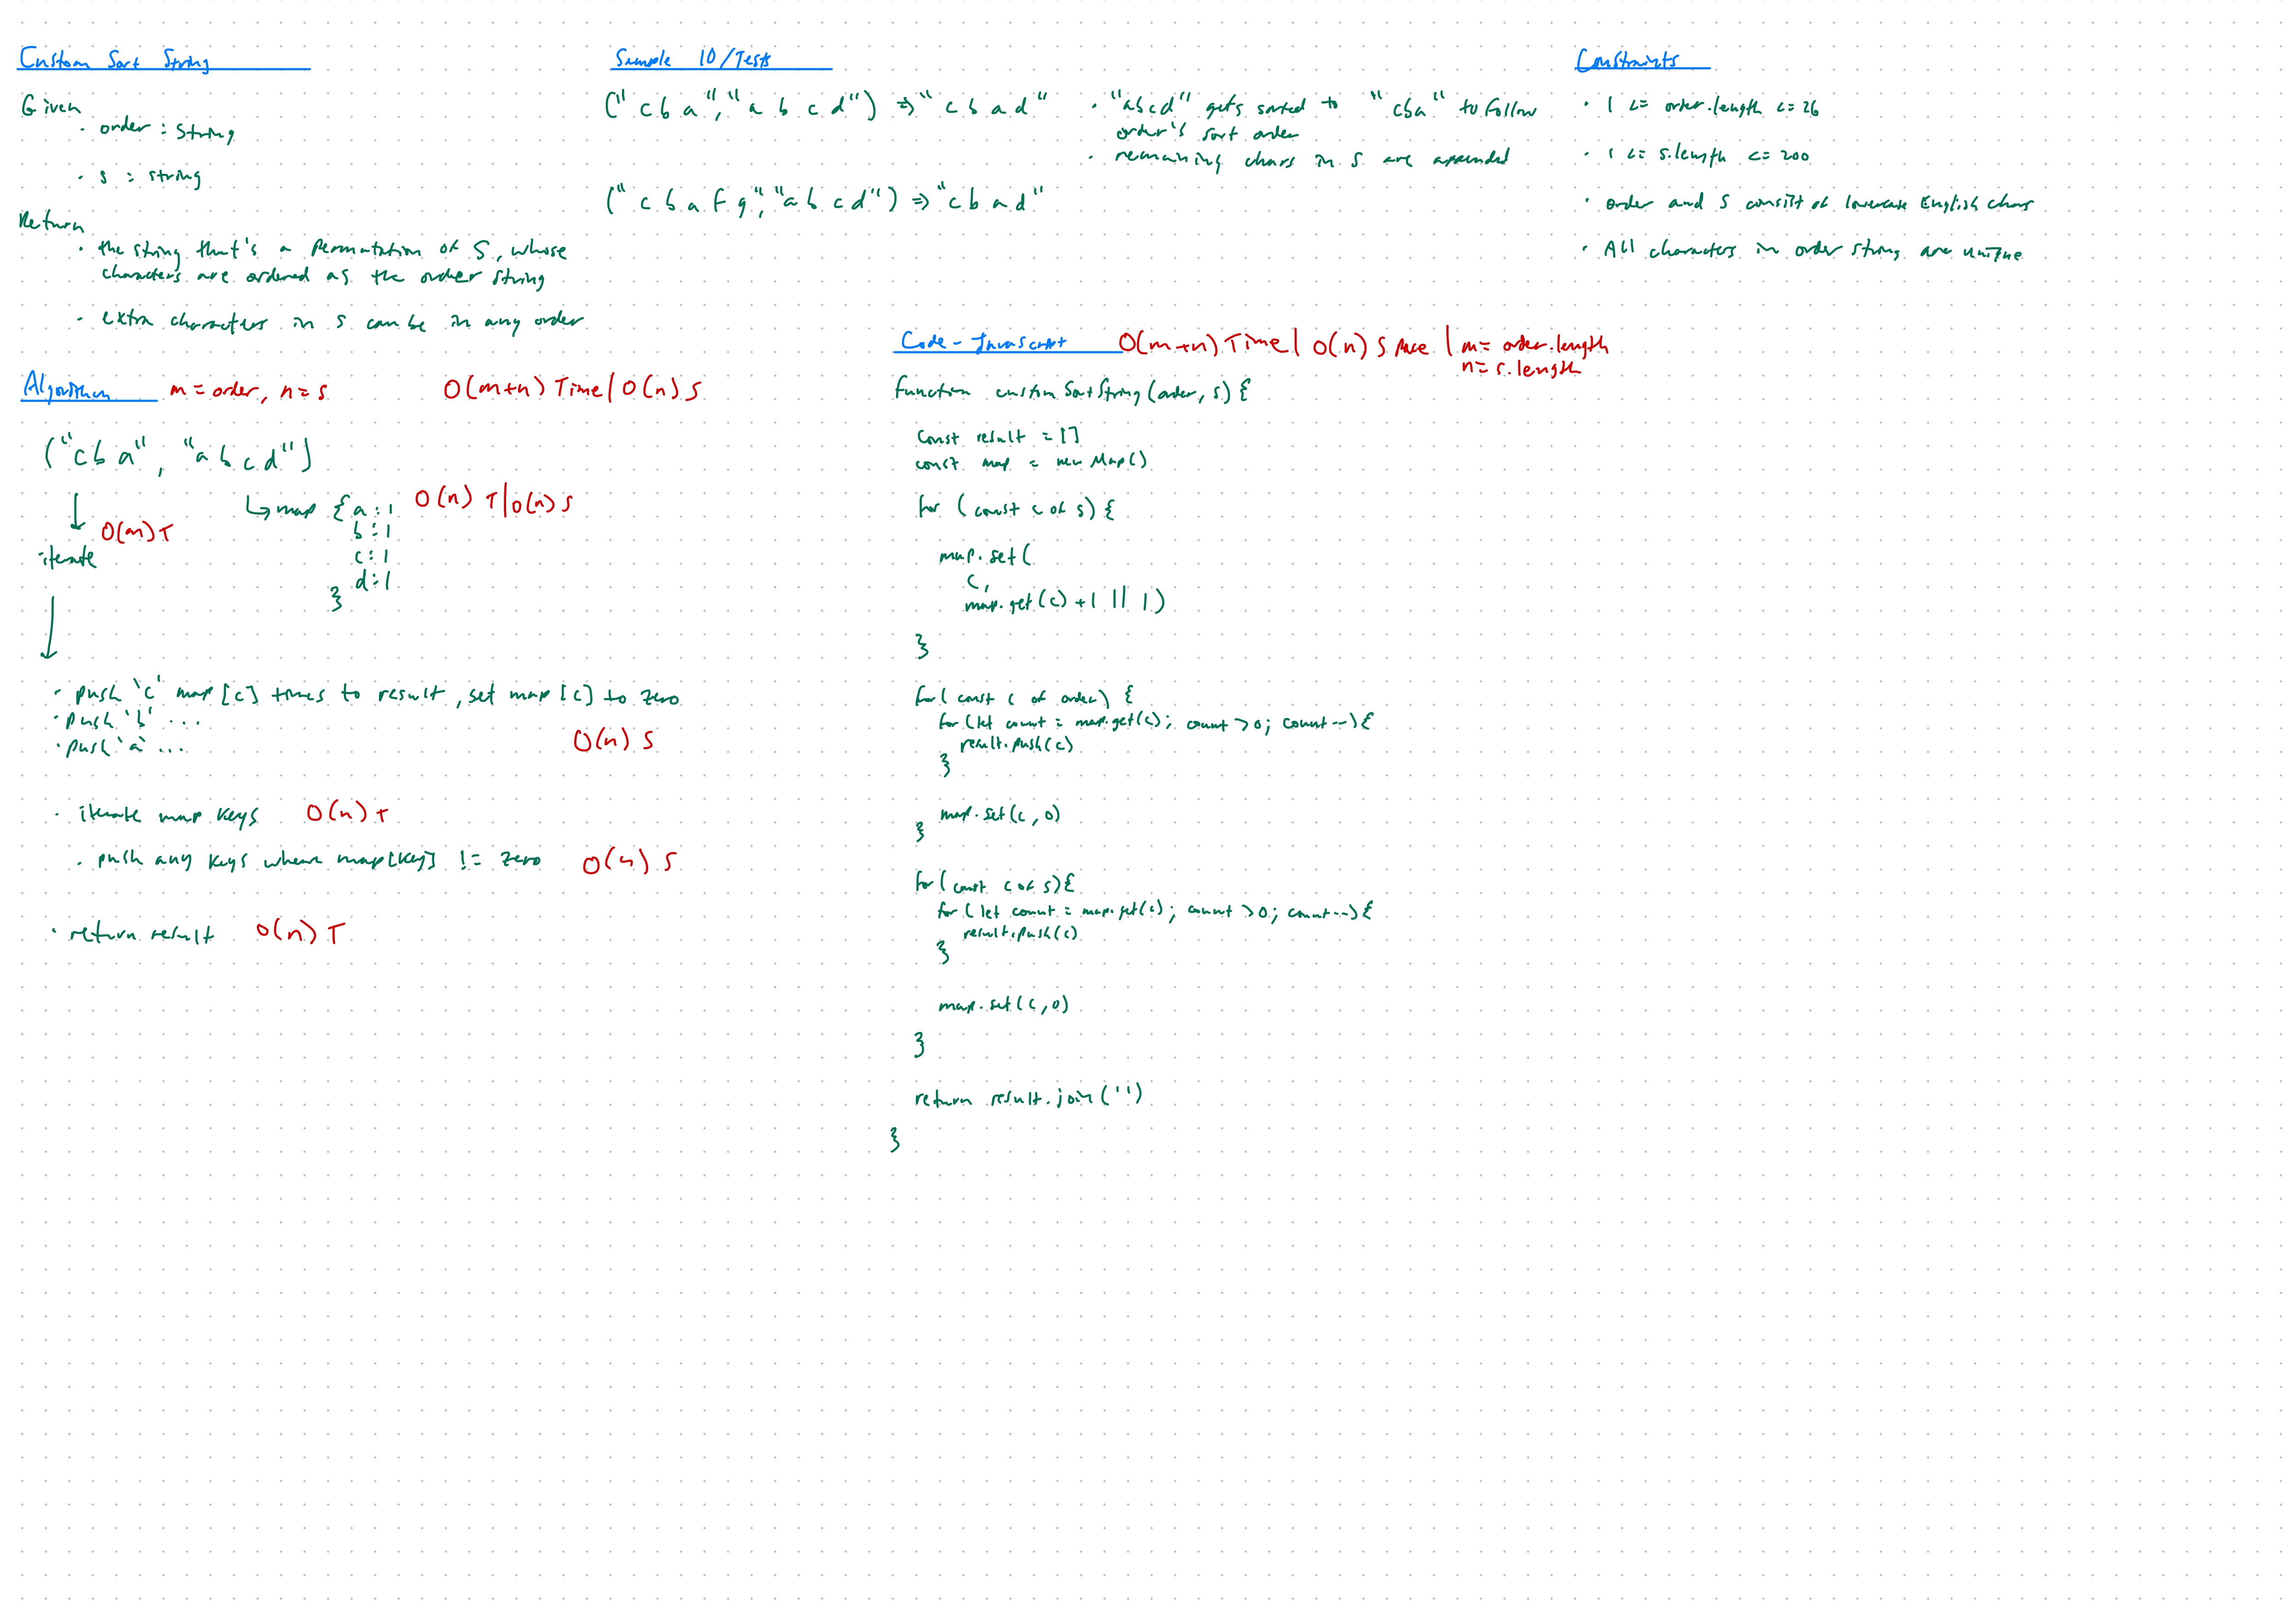 Custom Sort String
Given
· order : String
· s : string
Return
· the string that's a permutation of S, whose
characters are ordered as the order string
· extra characters in s can be in any order
Sample IO/Tests
("cba", "abcd") => "cbad"
· "abcd" gets sorted to "cba" to follow
order's sort order
· remaining chars in s are appended
("cbafg", "abcd") => "cbad"
Constraints
· 1 <= order.length <= 26
· 1 <= s.length <= 200
· order and s consist of lowercase English chars
· All characters in order string are unique
Algorithm m = order, n = s O(m+n) Time | O(n) S
("cba", "abcd")
↓ O(m) T
iterate
↳ map { a : 1 O(n) T | O(n) S
b : 1
c : 1
d : 1
}
↓
· push 'c' map[c] times to result, set map[c] to zero
· push 'b' ...
· push 'a' ... O(n) S
· iterate map keys O(n) T
· push any keys where map[key] != zero O(n) S
· return result O(n) T
Code - Javascript O(m+n) Time | O(n) Space | m = order.length
n = s.length
function customSortString(order, s) {
const result = []
const map = new Map()
for (const c of s) {
map.set(
c,
map.get(c) + 1 || 1)
}
for (const c of order) {
for (let count = map.get(c); count > 0; count--) {
result.push(c)
}
map.set(c, 0)
}
for (const c of s) {
for (let count = map.get(c); count > 0; count--) {
result.push(c)
}
map.set(c, 0)
}
return result.join('')
}